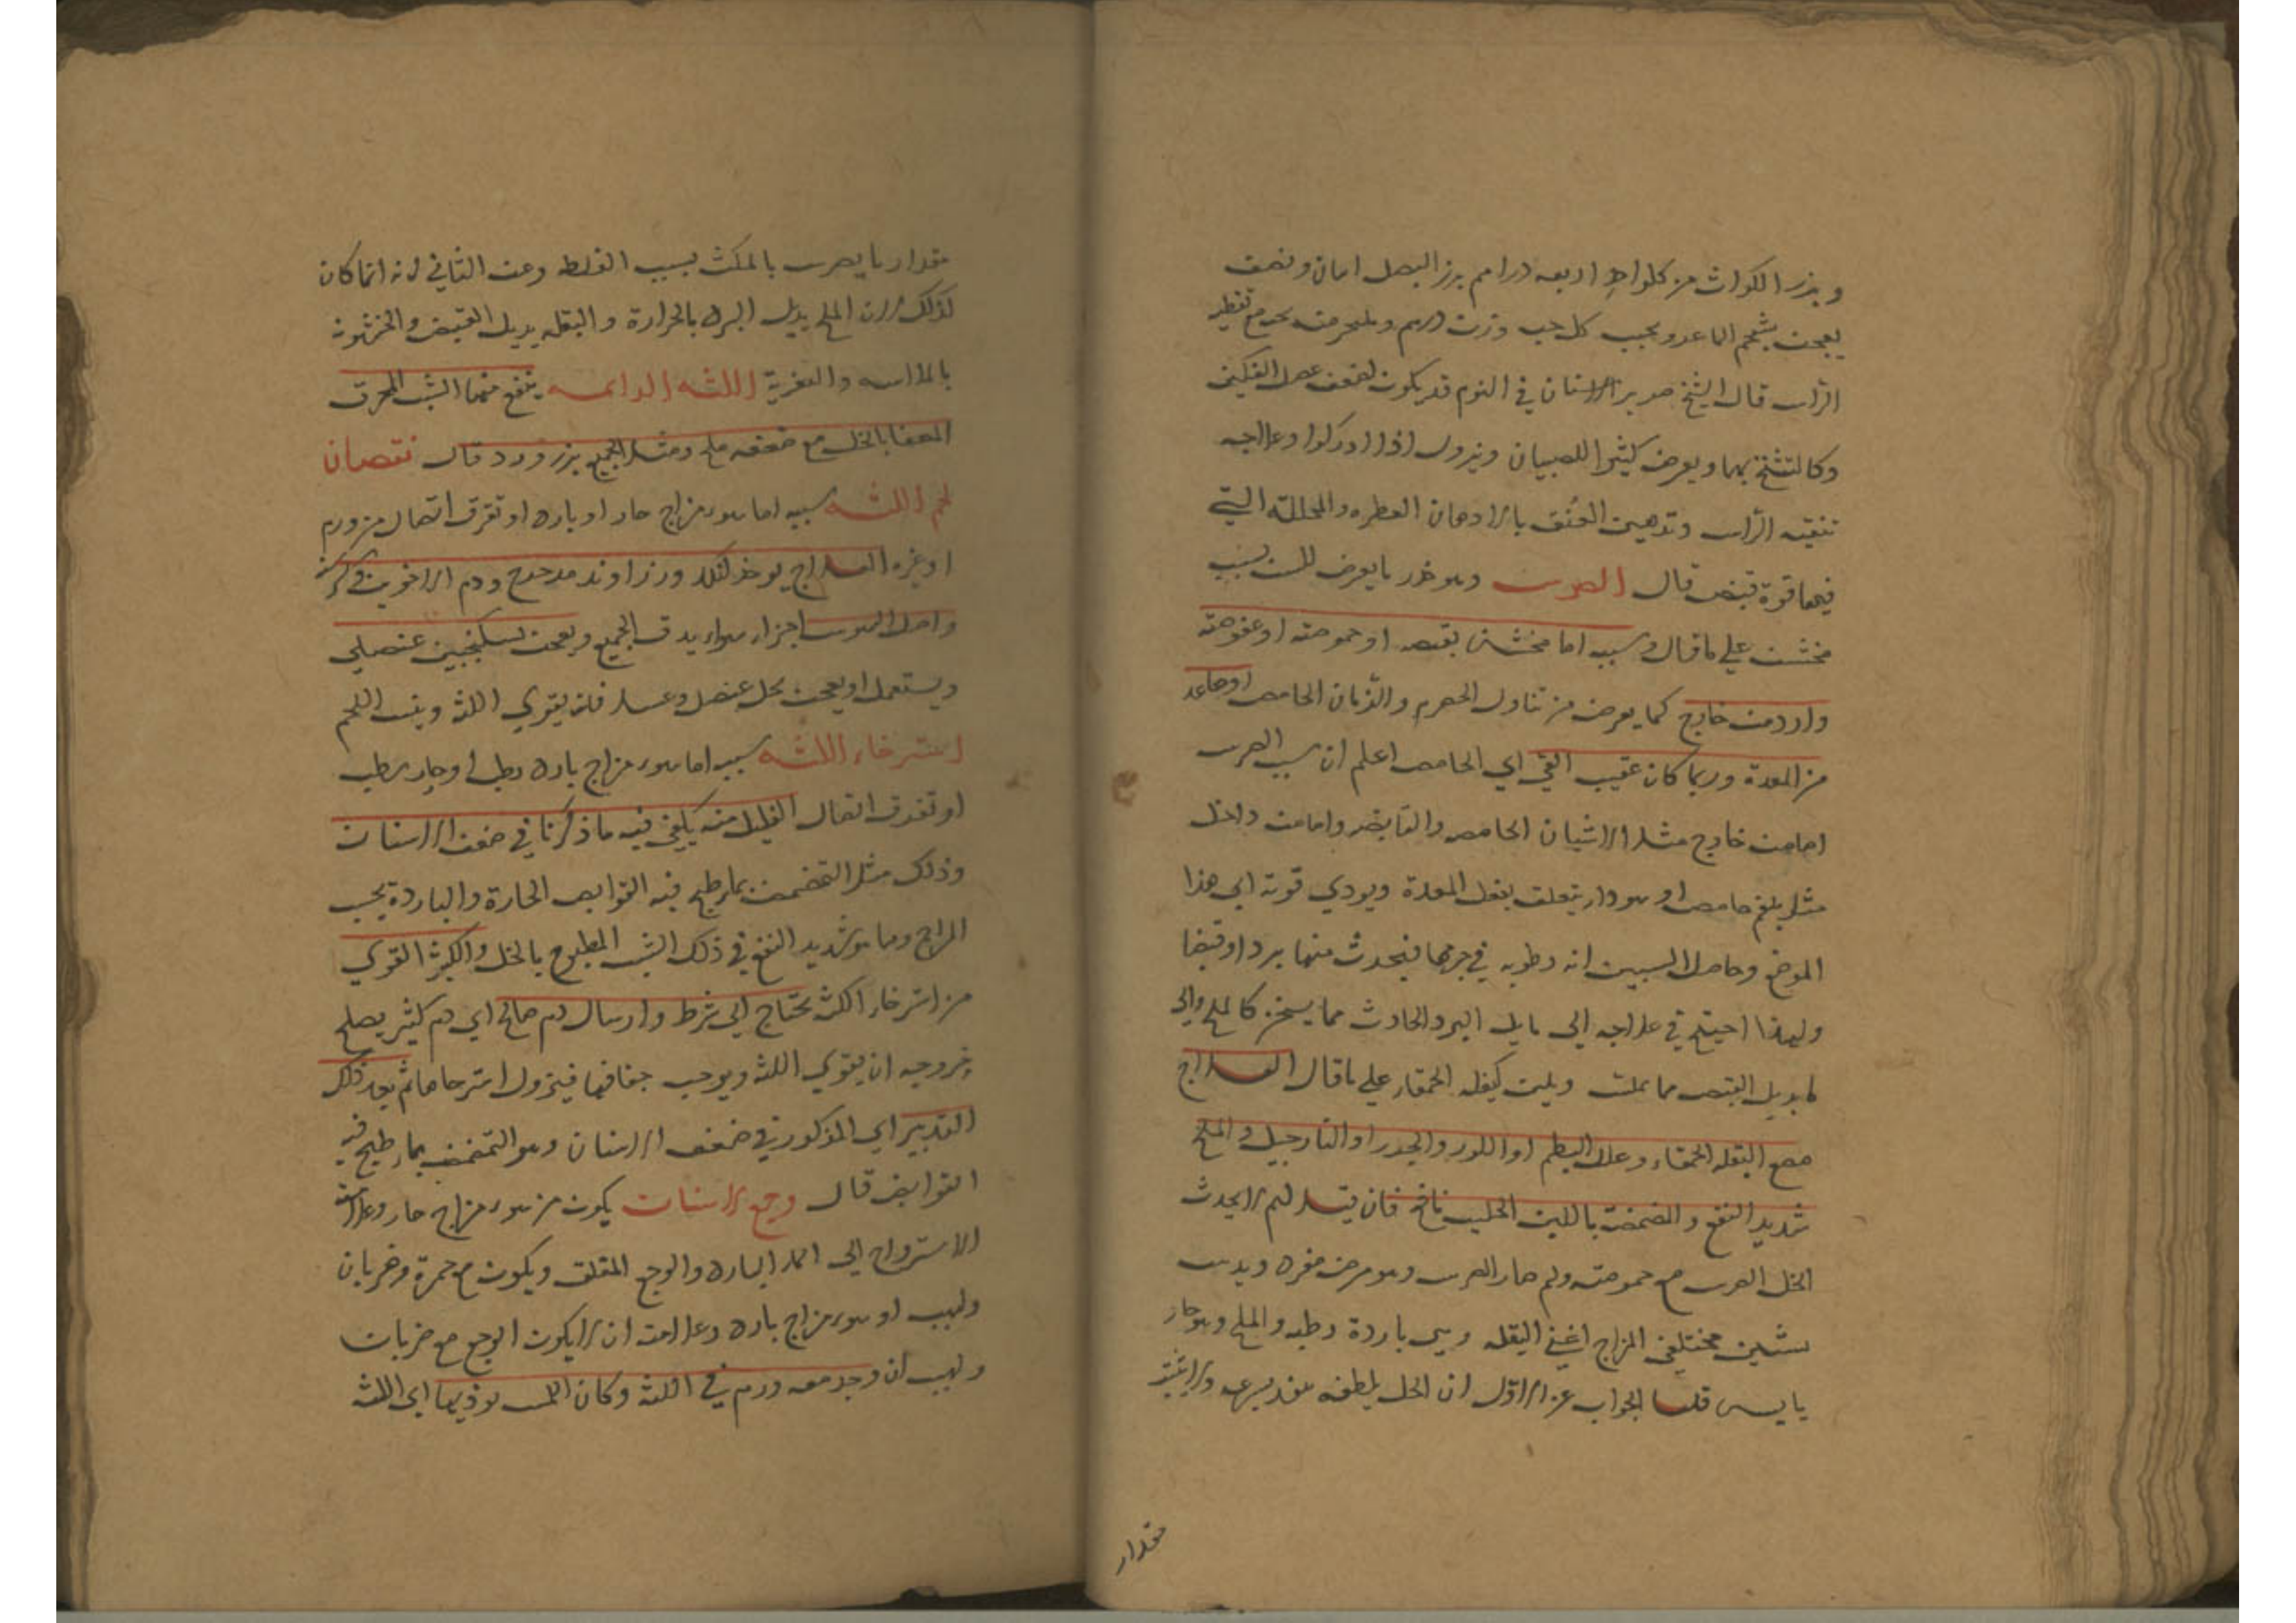 وبزر الكراث من كل واحد اربعه دراهم بزر البصل اثنان ونصف
يعجن بشحم الماعز ويحبب كل حب وزن درهم ويبخر منه بحبه مع تغطيه
الراس قال الشيخ صرير الاسنان في النوم قد يكون لضعف عضل الفكين
وكالتشنج بها ويعرض كثيرا للصبيان ويزول اذا ادركوا وعلاجه
تنقيه الراس وتدهين العنق بالادهان العطره والمحللة التي
فيها قوة قبض قال الضرس وهو خدر ما يعرض للسن بسبب
مخشن على ما قال وسببه اما مخشن بقبضه او حموضته او عفوصته
وارد من خارج كما يعرض من تناول الحصرم والرمان الحامض او صاعد
من المعدة وربما كان عقيب القي اي الحامض اعلم ان سبب الضرس
اما من خارج مثل الاشيان الحامض والقابض واما من داخل
مثل بلغم حامض او سودا يتعلق بفعل المعدة ويودي قوته الى هذا
الموضع وحاصل السببين انه رطوبه في جرمها فيحدث منها برد او قبضا
ولهذا احتيج في علاجه الى ما يل البرد الحادث مما يسخن كالملح والى
ما يديل القبض مما يملس ويلين كبقله الحمقاء على ما قال العلاج
مضغ البقله الحمقاء وعلك البطم او اللوز والجوز او النارجيل والملح
شديد النفع والمضمضة باللبن الحليب نافع فان قيل لم لا يحدث
الخل الضرس مع حموضته ولم صار الضرس وهو مرض مفرد ويدس
بشئين مختلفي المزاج اعني البقله وهي باردة رطبه والملح وهو حار
يابس قلنا الجواب عن الاول ان الخل يلطفه ينفذ بسرعه ولا يثبت
مقدار
مقدار ما يضرس بالمكث بسبب الغلط وعن الثاني انه انما كان
كذلك لان الملح يديل البرد بالحرارة والبقله يديل القبض والخشونه
بالملاسه والتغرية اللثه الداميه ينفع منها الشب المحرق
المطفا بالخل مع ضعفه ملح ومثل الجميع بزر ورد قال نقصان
لحم اللثه سببه اما سوء مزاج حار او بارد او تفرق اتصال من ورم
او غيره العلاج يوخذ كندر وزراوند مدحرج ودم الاخوين وكرسنه
واصل السوسن اجزاء سواء يدق الجميع ويعجن بسكنجبين عنصلي
ويستعمل او يعجن بخل عنصل وعسل فانه يقوي اللثه وينبت اللحم
استرخاء اللثه سببه اما سوء مزاج بارد رطب او حار رطب
او تفرق اتصال القليل منه يكفي فيه ما ذكرنا في ضعف الاسنان
وذلك مثل التمضمض بماء طبخ فيه القوابض الحارة والباردة بحسب
المزاج وما هو شديد النفع في ذلك الشب المطبوخ بالخل والكثير القوي
من استرخاء اللثه يحتاج الى شرط وارسال دم صالح اي دم كثير يصلح
خروجه ان يقوي اللثه ويوجب جفافها فيزول استرخاها ثم بعد ذلك
التدبير اي المذكور في ضعف الاسنان وهو التمضمض بماء طبخ فيه
القوابض قال وجع الاسنان يكون من سوء مزاج حار وعلامته
الاسترواح الى الماء البارد والوجع المقلق ويكون مع حمرة وضربان
ولهيب او سوء مزاج بارد وعلامته ان لا يكون الوجع مع ضربان
ولهيب ان وجد معه ورم في اللثه وكان اللمس يوذيها اي اللثه